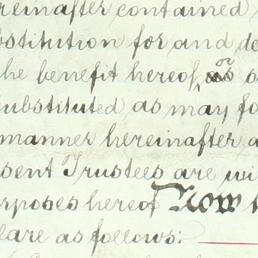 reinafter contained
bstitution for and de
he benefit hereof or s
substituted as may fo
manner hereinafter a
sent Trustees are wi
rposes hereof Now
lare as follows: